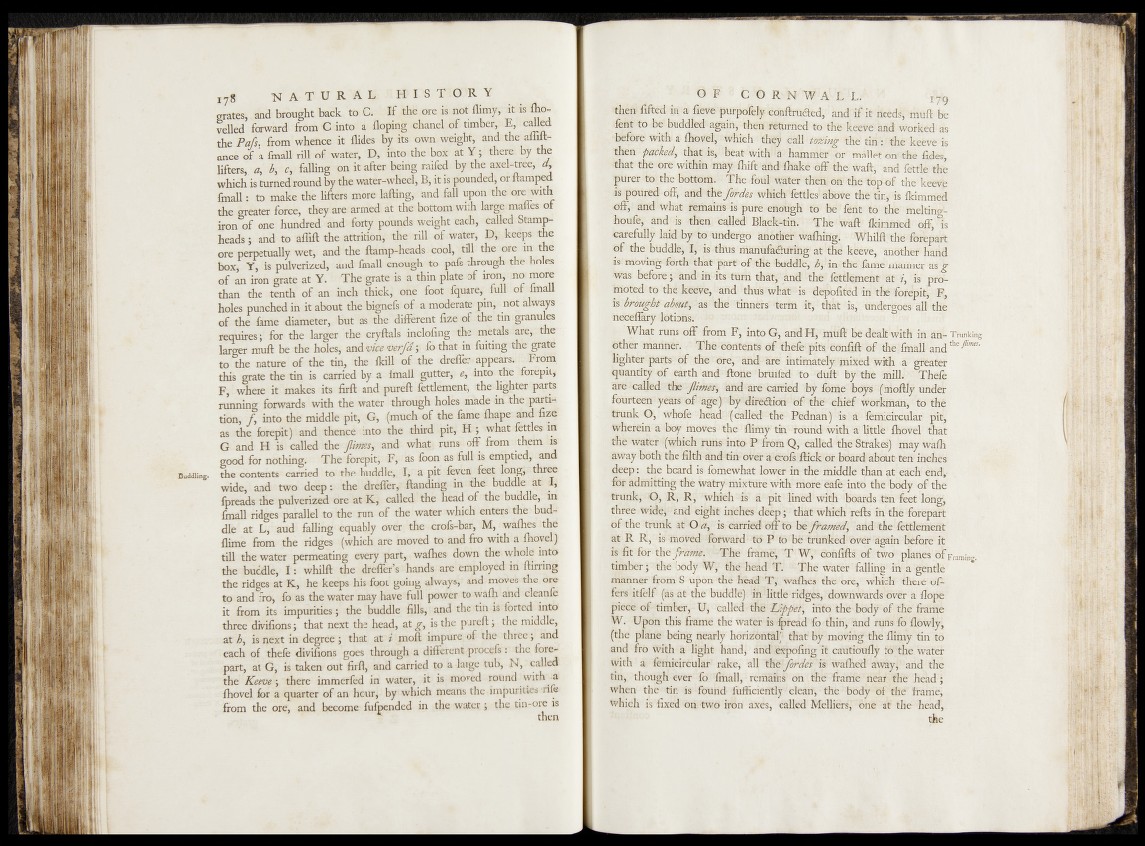 178 NATURAL HISTORY
grates, and brought back to C. If the ore is not ſlimy, it is ſho-
velled forward from C into a ſloping chanel of timber, E, called
the Paſs, from whence it ſlides by its own weight, and the aſſiſt-
ance of a ſmall rill of water, D, into the box at Y; there by the
lifters, a, b, c, falling on it after being raiſed by the axel-tree, d,
which is turned round by the water-wheel, B, it is pounded, or ſtamped
ſmall: to make the lifters more laſting, and fall upon the ore with
the greater force, they are armed at the bottom with large maſſes of
iron of one hundred and forty pounds weight each, called Stamp-
heads; and to aſſiſt the attrition, the rill of water, D, keeps the
ore perpetually wet, and the ſtamp-heads cool, till the ore in the
box, Y, is pulverized, and ſmall enough to paſs through the holes
of an iron grate at Y. The grate is a thin plate of iron, no more
than the tenth of an inch thick, one foot ſquare, full of ſmall
holes punched in it about the bigneſs of a moderate pin, not always
of the ſame diameter, but as the different ſize of the tin granules
requires; for the larger the cryſtals incloſing the metals are, the
larger muſt be the holes, and vice verſâ; ſo that in ſuiting the grate
to the nature of the tin, the ſkill of the dreſſer appears. From
this grate the tin is carried by a ſmall gutter, e, into the forepit,
F, where it makes its firſt and pureſt ſettlement, the lighter parts
running forwards with the water through holes made in the parti-
tion, f, into the middle pit, G, (much of the ſame ſhape and ſize
as the forepit) and thence into the third pit, H; what ſettles in
G and H is called the ſlimes, and what runs off from them is
good for nothing. The forepit, F, as ſoon as full is emptied, and
Buddling. the contents carried to the buddle, I, a pit ſeven feet long, three
wide, and two deep: the dreſſer, ſtanding in the buddle at I,
ſpreads the pulverized ore at K, called the head of the buddle, in
ſmall ridges parallel to the run of the water which enters the bud-
dle at L, and falling equably over the croſs-bar, M, waſhes the
ſlime from the ridges (which are moved to and fro with a ſhovel)
till the water permeating every part, waſhes down the whole into
the buddle, I: whilſt the dreſſer's hands are employed in ſtirring
the ridges at K, he keeps his foot going always, and moves the ore
to and fro, ſo as the water may have full power to waſh and cleanſe
it from its impurities; the buddle fills, and the tin is ſorted into
three diviſions; that next the head, at g, is the pureſt; the middle,
at h, is next in degree; that at i moſt impure of the three; and
each of theſe diviſions goes through a different proceſs: the fore-
part, at G, is taken out firſt, and carried to a large tub, N, called
the Keeve; there immerſed in water, it is moved round with a
ſhovel for a quarter of an hour, by which means the impurities riſe
from the ore, and become ſuſpended in the water; the tin-ore is
then
OF CORNWALL. 179
then ſifted in a ſieve purpoſely conſtructed, and if it needs, muſt be
ſent to be buddled again, then returned to the keeve and worked as
before with a ſhovel, which they call tozing the tin: the keeve is
then packed, that is, beat with a hammer or mallet on the ſides,
that the ore within may ſhift and ſhake off the waſt, and ſettle the
purer to the bottom. The foul water then on the top of the keeve
is poured off, and the ſordes which ſettles above the tin, is ſkimmed
off, and what remains is pure enough to be ſent to the melting-
houſe, and is then called Black-tin. The waſt ſkimmed off, is
carefully laid by to undergo another waſhing. Whilſt the forepart
of the buddle, I, is thus manufacturing at the keeve, another hand
is moving forth that part of the buddle, h, in the ſame manner as g
was before; and in its turn that, and the ſettlement at i, is pro-
moted to the keeve, and thus what is depoſited in the forepit, F,
is brought about, as the tinners term it, that is, undergoes all the
neceſſary lotions.
What runs off from F, into G, and H, muſt be dealt with in an- Trunking
other manner. The contents of theſe pits conſiſt of the ſmall and the ſlimes.
lighter parts of the ore, and are intimately mixed with a greater
quantity of earth and ſtone bruiſed to duſt by the mill. Theſe
are called the ſlimes, and are carried by ſome boys (moſtly under
fourteen years of age) by direction of the chief workman, to the
trunk O, whoſe head (called the Pednan) is a ſemicircular pit,
wherein a boy moves the ſlimy tin round with a little ſhovel that
the water (which runs into P from Q, called the Strakes) may waſh
away both the filth and tin over a croſs ſtick or board about ten inches
deep: the beard is ſomewhat lower in the middle than at each end,
for admitting the watry mixture with more eaſe into the body of the
trunk, O, R, R, which is a pit lined with boards ten feet long,
three wide, and eight inches deep; that which reſts in the forepart
of the trunk at O a, is carried off to be framed, and the ſettlement
at R R, is moved forward to P to be trunked over again before it
is fit for the frame. The frame, T W, conſiſts of two planes of Framing.
timber; the body W, the head T. The water falling in a gentle
manner from S upon the head T, waſhes the ore, which there of-
fers itſelf (as at the buddle) in little ridges, downwards over a ſlope
piece of timber, U, called the Lippet, into the body of the frame
W. Upon this frame the water is ſpread ſo thin, and runs ſo ſlowly,
(the plane being nearly horizontal) that by moving the ſlimy tin to
and fro with a light hand, and expoſing it cautiouſly to the water
with a ſemicircular rake, all the ſordes is waſhed away, and the
tin, though ever ſo ſmall, remains on the frame near the head;
when the tin is found ſufficiently clean, the body of the frame,
which is fixed on two iron axes, called Melliers, one at the head,
the